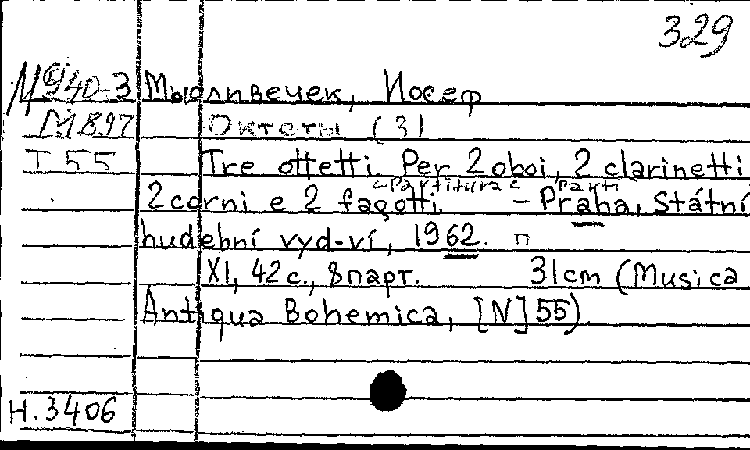 329
М940-3 Мысливечек, Иосеф
М897 Октеты (3)
Т55 Tre ottetti. Per 2 oboi, 2 clarinetti
<Partitura e parti
2 corni e 2 fagotti. – Praha, Státní
hudební vyd-ví, 1962. п
XI, 42 с., 8 парт. 31 cm (Musica
Antiqua Bohemica, [N] 55)
Н.3406